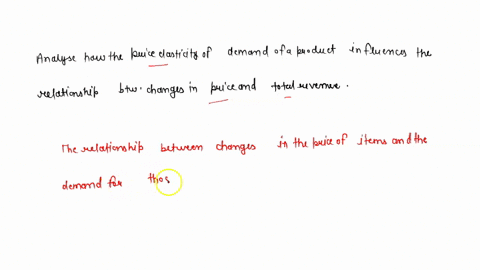 Analyse how the price elasticity of demand of a product influences the
relationship btw. changes in price and total revenue.
The relationship between changes in the price of items and the
demand for thos